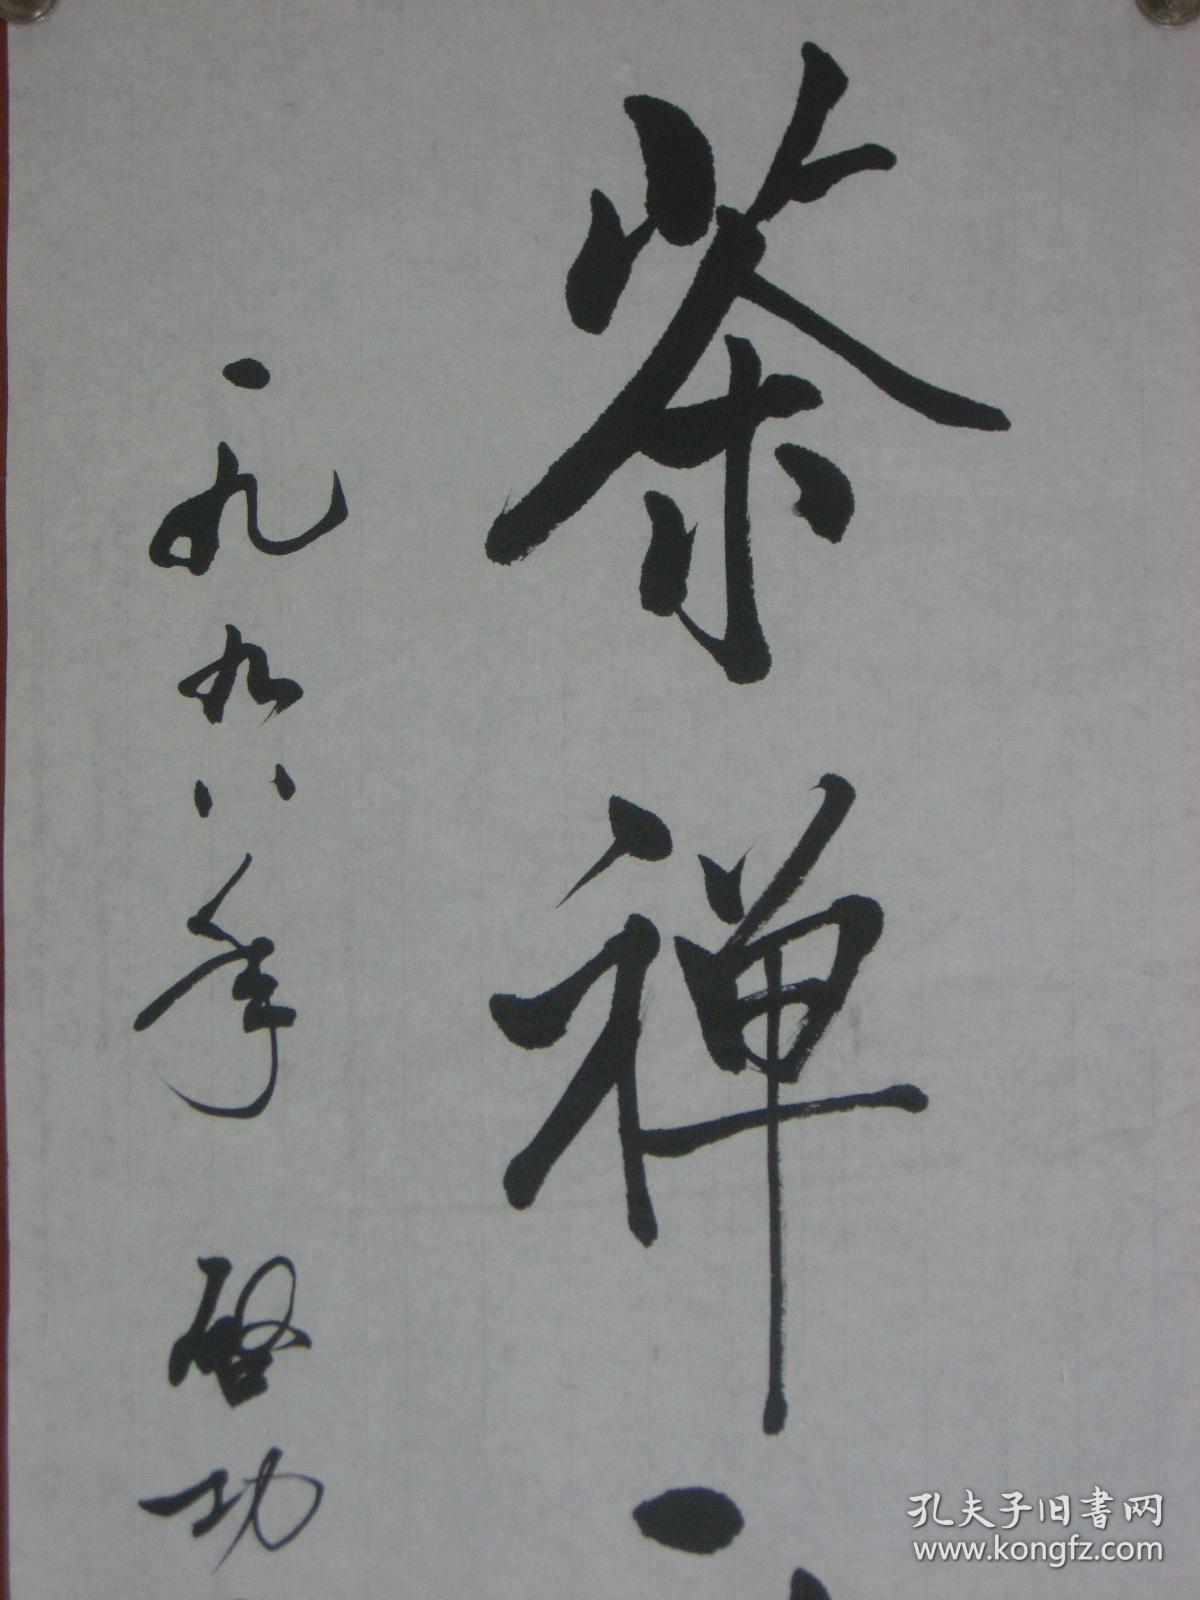 茶禅一
一九九八年 启功
孔夫子旧书网
www.kongfz.com